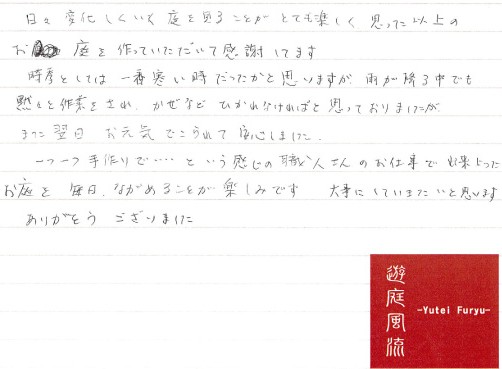 日々変化していく庭を見ることがとても楽しく思った以上の
お庭を作っていただいて感謝してます
時季としては一番寒い時だったかと思いますが、雨が降る中でも
黙々と作業をされ、かぜなどひかれなければと思っておりましたが
また翌日お元気でこられて安心しました、
一つ一つ手作りで……という感じの職人さんのお仕事で出来上った
お庭を毎日、ながめることが楽しみです 大事にしていきたいと思います
ありがとうございました
遊庭風流
-Yutei Furyu-